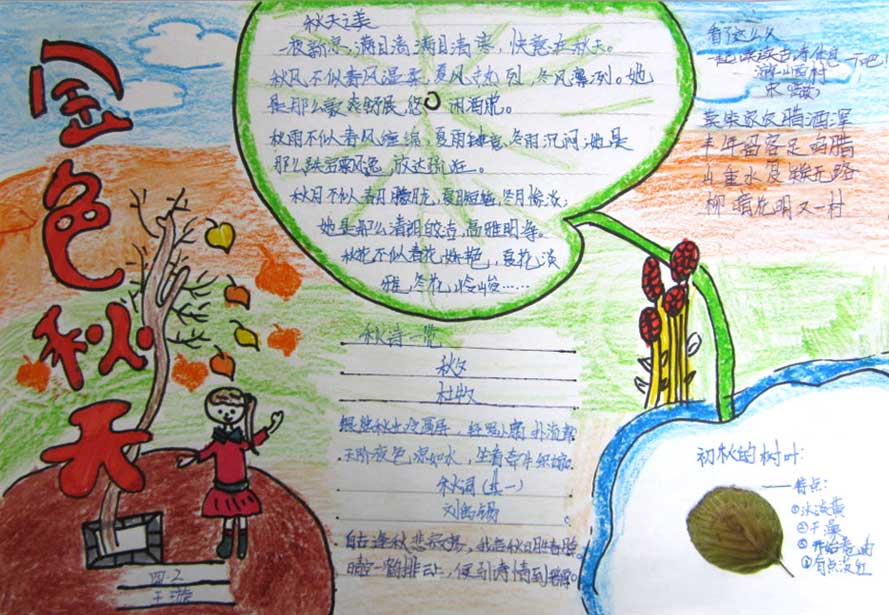 金色秋天
秋天之美
一夜新凉,满目滴满目清寒,快意在秋天。
秋风不似春风温柔,夏风热烈,冬风凛冽。她
是那么豪爽舒展,悠 闲洒脱。
秋雨不似春雨缠绵,夏雨 冬雨沉闷她是
那么 飘逸,放达
秋月不似春月朦胧,夏月 冬月惨淡;
她是那么清朗皎洁,高雅明净。
秋花不似春花娇艳,夏花淡
雅,冬花冷峻……
秋诗一览
秋夕
杜牧
银烛秋光冷画屏,轻罗小扇扑流萤
天阶夜色凉如水,坐看牵牛织女
秋词(其一)
刘禹锡
自古逢秋悲寂寥,我言秋日胜春朝
晴空一鹤排云上,便引诗情到碧霄。
看了这么久
一起来读古诗休息一下吧!
游山西村
宋
莫笑家家腊酒浑
丰年留客足鸡腊
山重水复疑无路
柳暗花明又一村
初秋的树叶:
——特点:
①水淡黄
②干
③开始
④有点淡红
四2
王